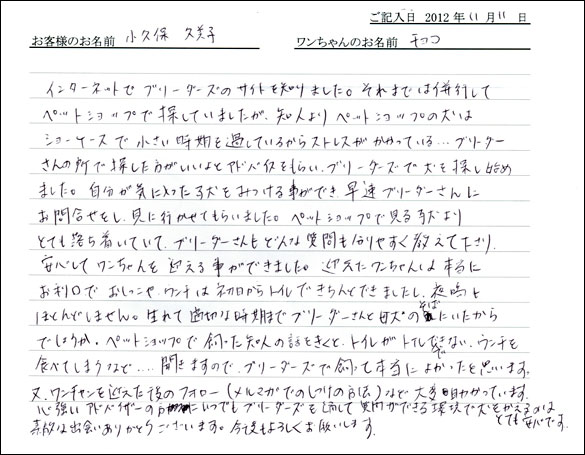 ご記入日 2012 年 11 月 11 日
お客様のお名前 小久保 久美子 ワンちゃんのお名前 チョコ
インターネットでブリーダーズのサイトを知りました。それまでは併行して
ペットショップで探していましたが、知人よりペットショップの犬は
ショーケースで小さい時期を過しているからストレスがかかっている…ブリーダー
さんの所で探した方がいいよとアドバイスをもらい、ブリーダーズで犬を探し始め
ました。自分が気に入った子犬をみつける事ができ、早速ブリーダーさんに
お問合せをし、見に行かせてもらいました。ペットショップで見る子犬より
とても落ち着いていて、ブリーダーさんもどんな質問も分りやすく教えて下さり、
安心してワンちゃんを迎える事ができました。迎えたワンちゃんは本当に
お利口でおしっこや、ウンチは初日からトイレできちんとできましたし、夜鳴も
ほとんどしません。生れて適切な時期までブリーダーさんと母犬のそばにいたから
でしょうか。ペットショップで飼った知人の話をきくと、トイレがトイレでできない、ウンチを
食べてしまうなど…聞きますので、ブリーダーズで飼って本当によかったと思います。
又、ワンチャンを迎えた後のフォロー(メルマガでのしつけの方法)など大変助かっています。
心強いアドバイザーの方にいつでもブリーダーズを通して質問ができる環境で犬をかえるのは
とても安心です。
素敵な出会いありがとうございます。今後もよろしくお願いします。